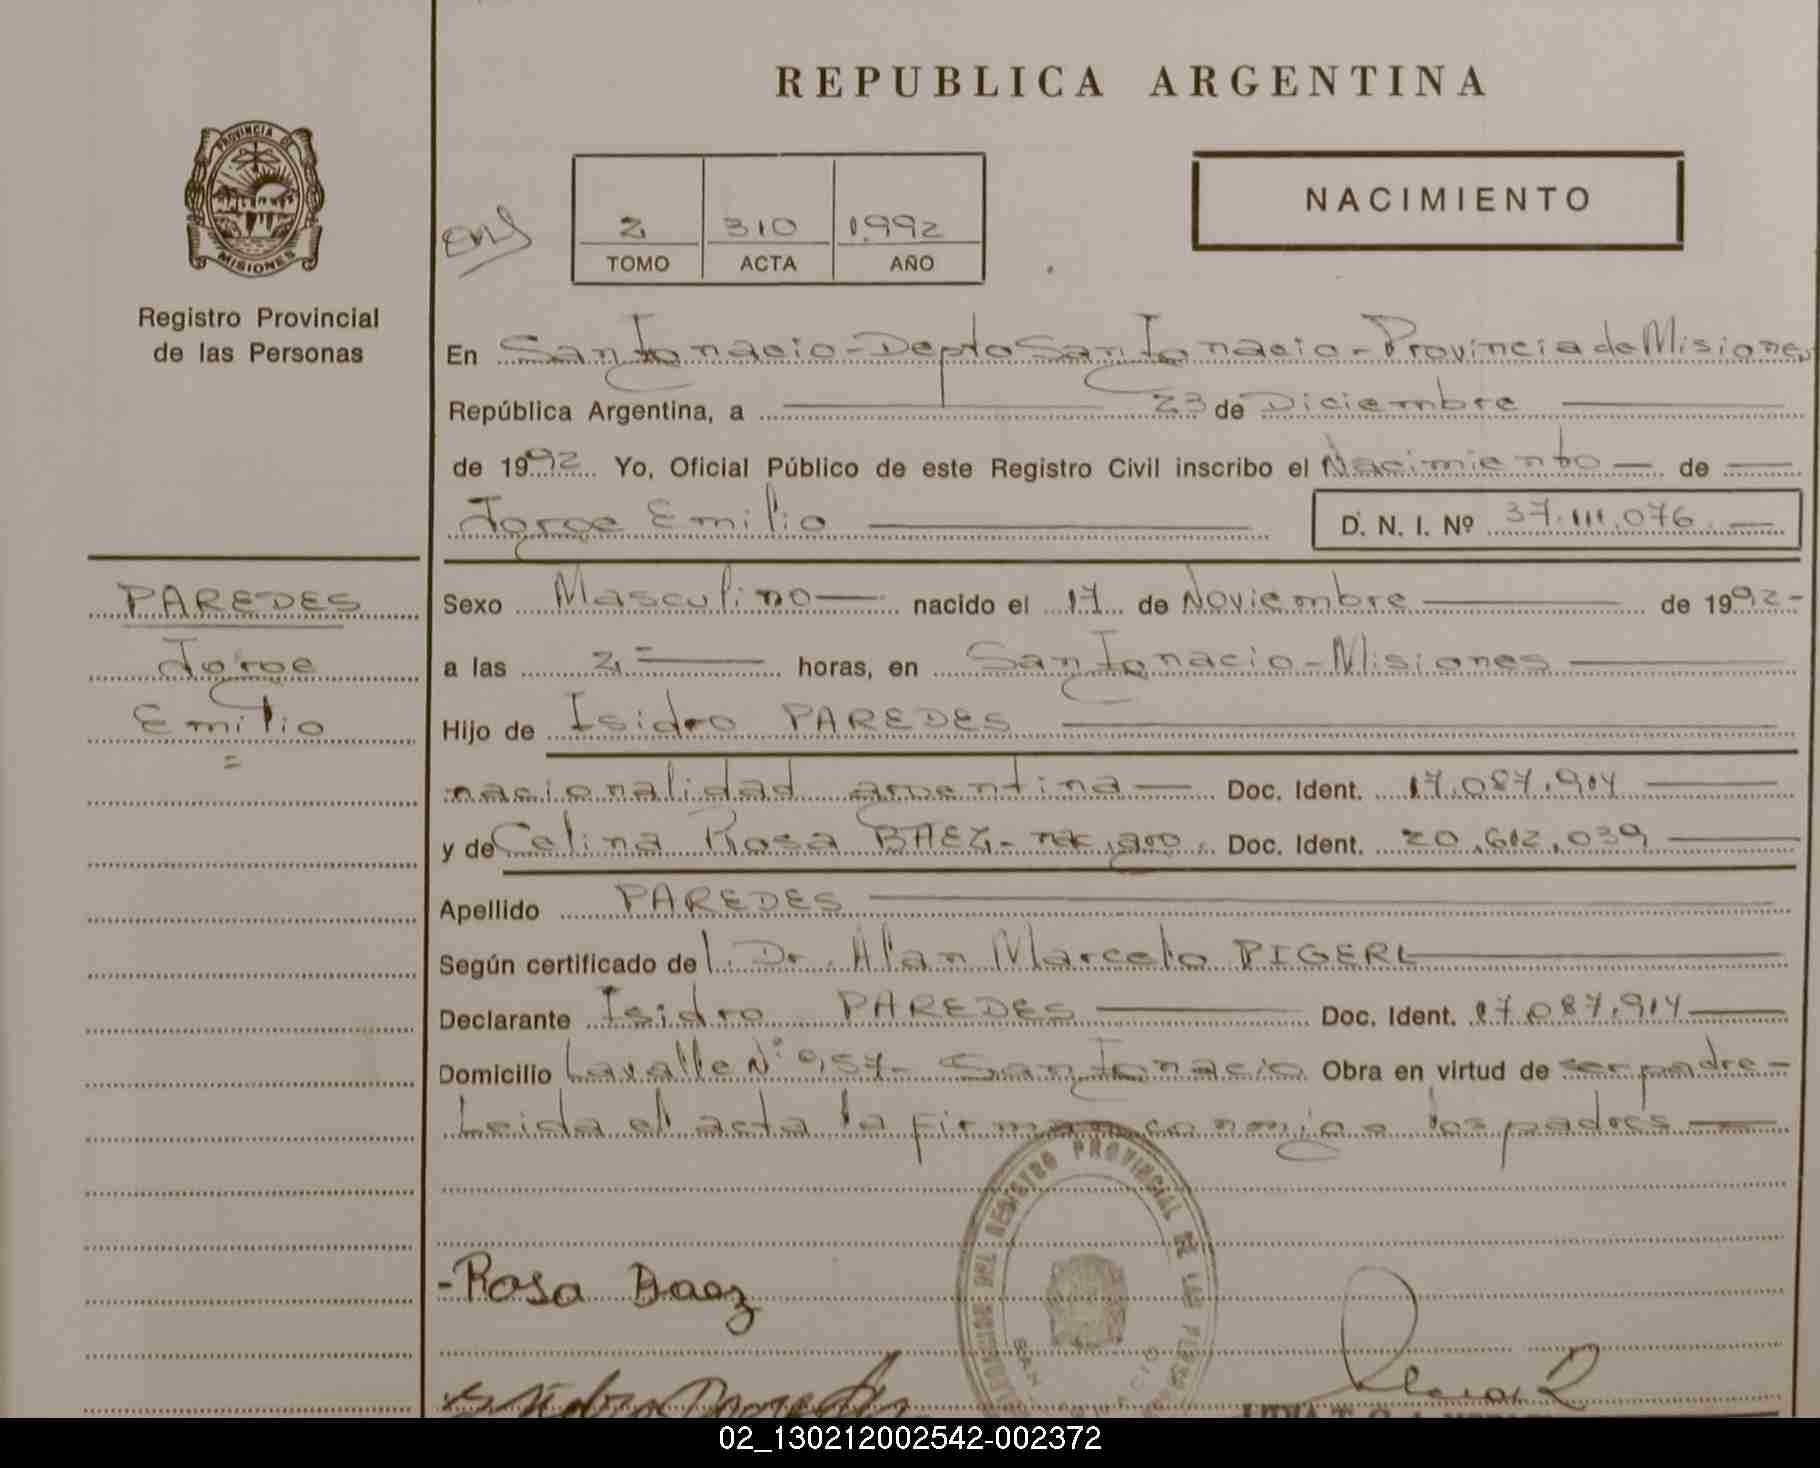 REPUBLICA ARGENTINA
PROVINCIA DE
MISIONES
Registro Provincial
de las Personas
2 310 1992
TOMO ACTA AÑO
NACIMIENTO
En San Ignacio - Depto San Ignacio - Provincia de Misiones
República Argentina, a 23 de Diciembre
de 1992 Yo, Oficial Público de este Registro Civil inscribo el Nacimiento de
Jorge Emilio D. N. I. Nº 37.111.076
PAREDES
Jorge
Emilio
Sexo Masculino nacido el 17 de Noviembre de 1992
a las 2 horas, en San Ignacio - Misiones
Hijo de Isidro PAREDES
nacionalidad argentina Doc. Ident. 17.087.914
y de Celina Rosa BAEZ - nac. arg. Doc. Ident. 20.612.039
Apellido PAREDES
Según certificado del Dr. Alan Marcelo PIGERL
Declarante Isidro PAREDES Doc. Ident. 17.087.914
Domicilio Lavalle Nº 957 - San Ignacio Obra en virtud de ser padre -
Leida el acta la firman conmigo los padres
REGISTRO PROVINCIAL DE LAS
SAN IGNACIO
-Rosa Baez
Isidro Paredes
02_130212002542-002372